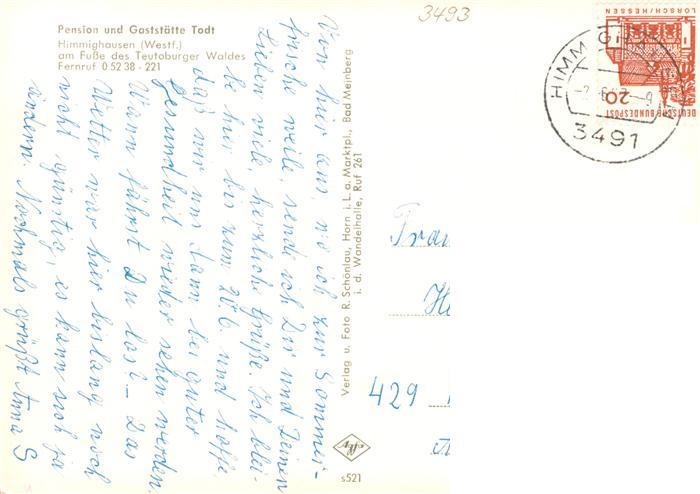 3493
Pension und Gaststätte Todt
Himmighausen (Westf.)
am Fuße des Teutoburger Waldes
Fernruf 0 52 38 - 221
Von hier aus, wo ich zur Sommer-
frische weile, sende ich Dir und Deinen
Lieben viele, herzliche Grüße. Ich blei-
be hier bis zum 20.6. und hoffe,
daß wir uns dann bei guter
Gesundheit wieder sehen werden.
Wann fährst Du los? - Das
Wetter war hier bislang noch
nicht günstig, es kann sich ja
ändern. Nochmals grüßt Anna S
Verlag u. Foto R. Schönlau, Horn i. L. a. Marktpl., Bad Meinberg
i. d. Wandelhalle, Ruf 261
Agfa
s521
LORSCH/HESSEN
20
DEUTSCHE BUNDESPOST
HIMMIGH
3491
Frau
429